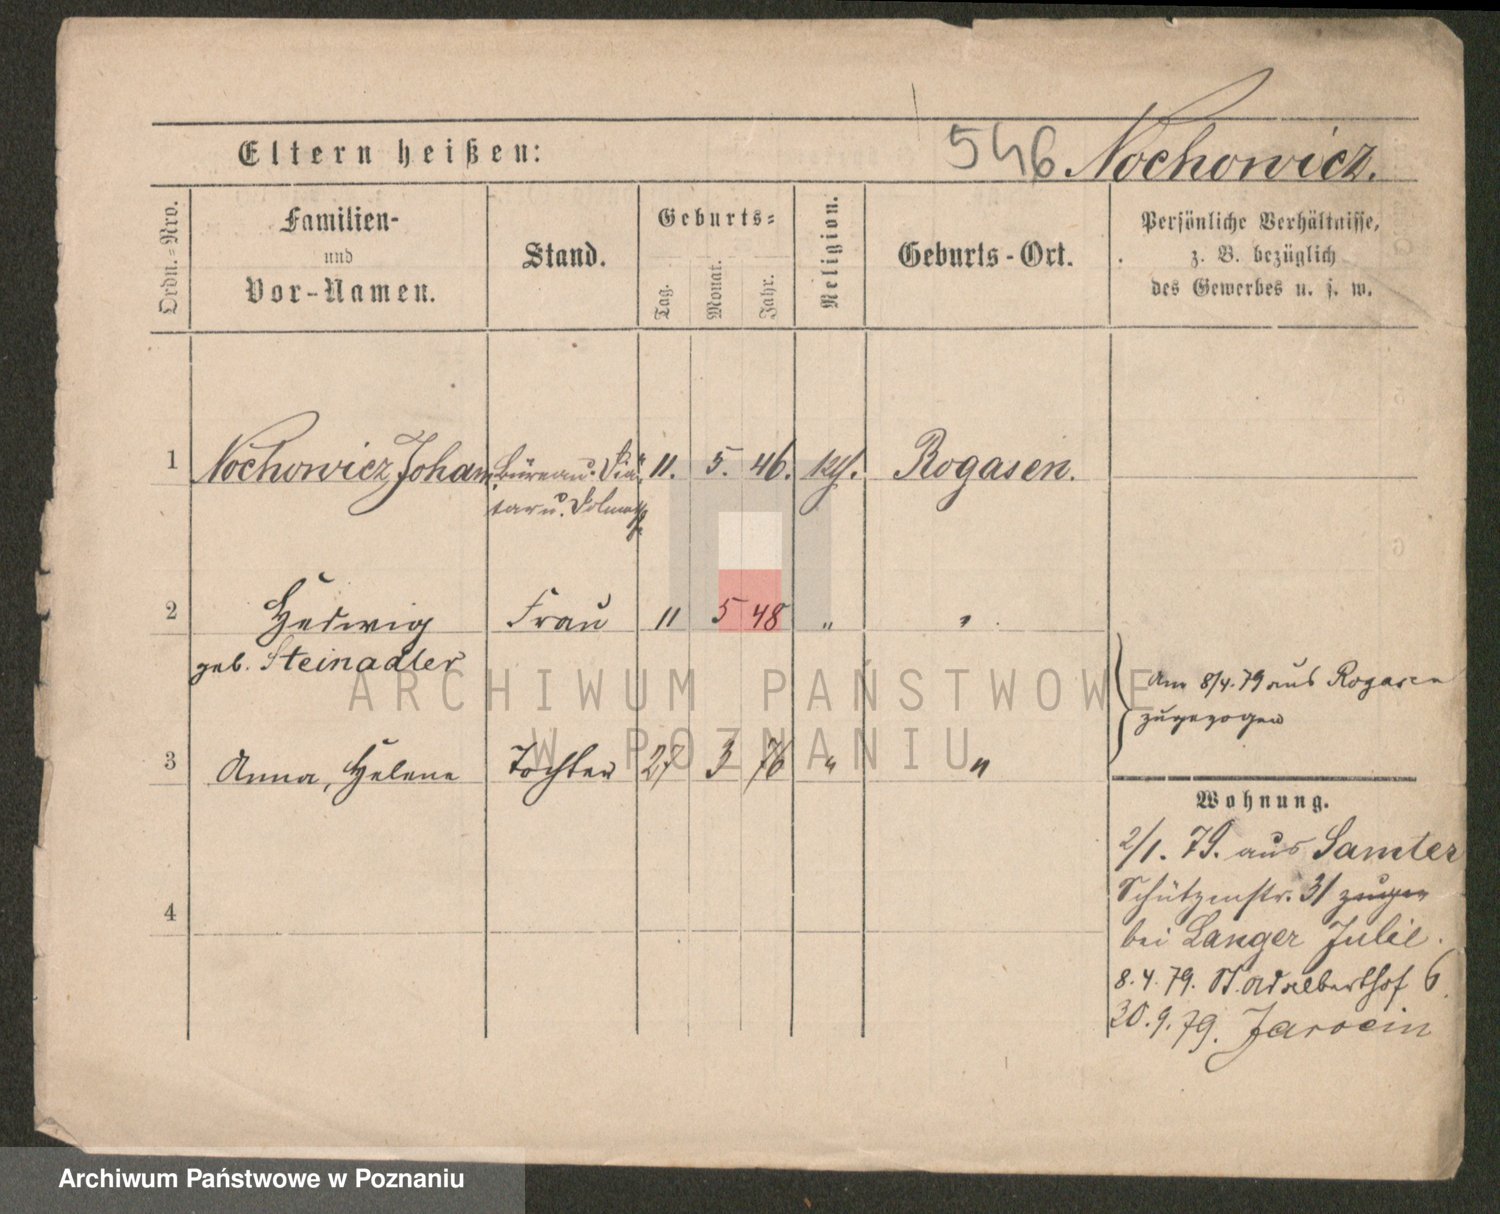 Eltern heißen: 546 Nochowicz.
Ordn.-Nro.
Familien-
und
Vor-Namen.
Stand.
Geburts-
Tag.
Monat.
Jahr.
Religion.
Geburts-Ort.
Persönliche Verhältnisse,
z. B. bezüglich
des Gewerbes u. s. w.
1 Nochowicz Johann Büreau-Diä- 11. 5. 46. Rogasen.
tar u.
2 Hedwig Frau 11 5 48 " "
geb. Steinadler
3 Anna, Helene Tochter 27 3 76 " "
Am 8/4. 79 aus Rogasen
zugezogen
4
Wohnung.
2/1. 79. aus Samter
Schützenstr. 31
bei Langer Julie.
8. 4. 79. St. Adalberthof 6.
30. 9. 79. Jarocin
ARCHIWUM PAŃSTWOWE
W POZNANIU
Archiwum Państwowe w Poznaniu